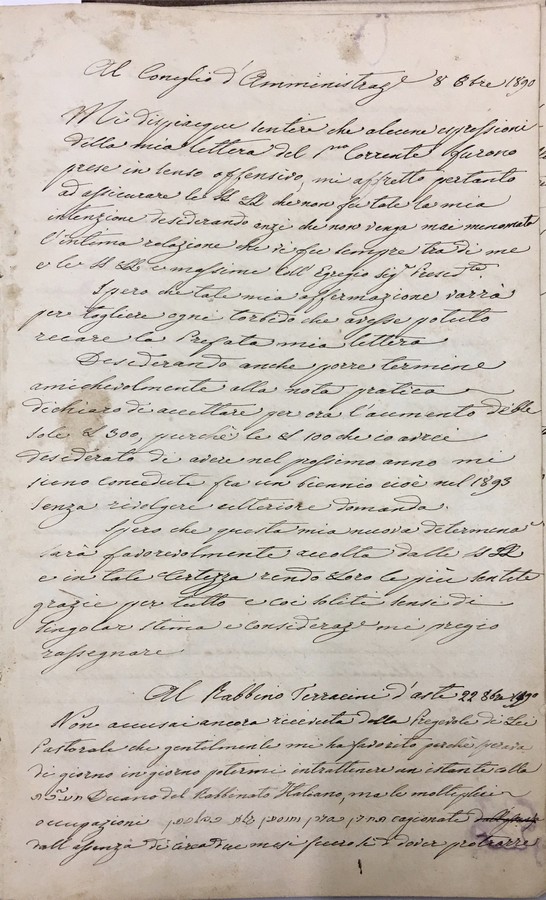 Al Consiglio d'Amministraz.e 8 8bre 1890
Mi dispiacque sentire che alcune espressioni
della mia lettera del 1mo Corrente furono
prese in senso offensivo, mi affretto pertanto
ad assicurare le SS LL che non fu tale la mia
intenzione desiderando anzi che non venga mai menomata
l'intima relazione che vi fu sempre tra di me
e le SS LL e massime coll'Egregio Sigr Presid.te
Spero che tale mia affermazione varrà
per togliere ogni torbido che avesse potuto
recare la Prefata mia lettera
Desiderando anche porre termine
amichevolmente alla nota pratica
dichiaro di accettare per ora l'aumento di
sole £ 300, purchè le £ 100 che io avrei
desiderato di avere nel prossimo anno mi
sieno concedute fra un biennio cioè nel 1893
senza rivolgere ulteriore domanda.
Spero che questa mia nuova determina
sarà favorevolmente accolta dalle SS LL
e in tale certezza rendo Loro le più sentite
grazie per tutto e coi soliti sensi di
singolar stima e consideraz.e mi pregio
rassegnare
Al Rabbino Terracini d'Asti 22 8bre 1890
Non accusai ancora ricevuta della Pregevole di Lei
Pastorale che gentilmente mi ha favorito perchè sperava
di giorno in giorno potermi intrattenere un istante colla
Decano del Rabbinato Italiano, ma le molteplici
occupazioni cagionate
dall'assenza di circa due mesi fecero sì di dover protrarre